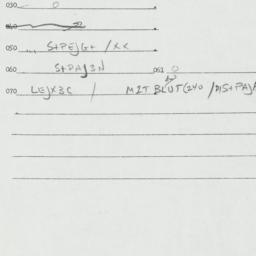 030 0
050 ... S+PEJG+ / XX
060 S+PAJ3N 061 0
070 LEJX3C / MIT BLUT(240 / DIS+PAJ